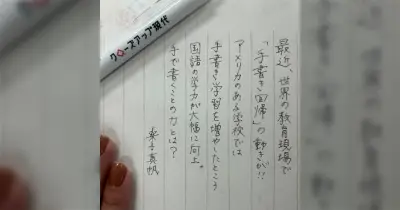 クローズアップ現代
最近、世界の教育現場で
「手書き回帰」の動きが!!
アメリカのある学校では
手書き学習を増やしたところ
国語の学力が大幅に向上。
手で書くことの力とは?
桑子真帆